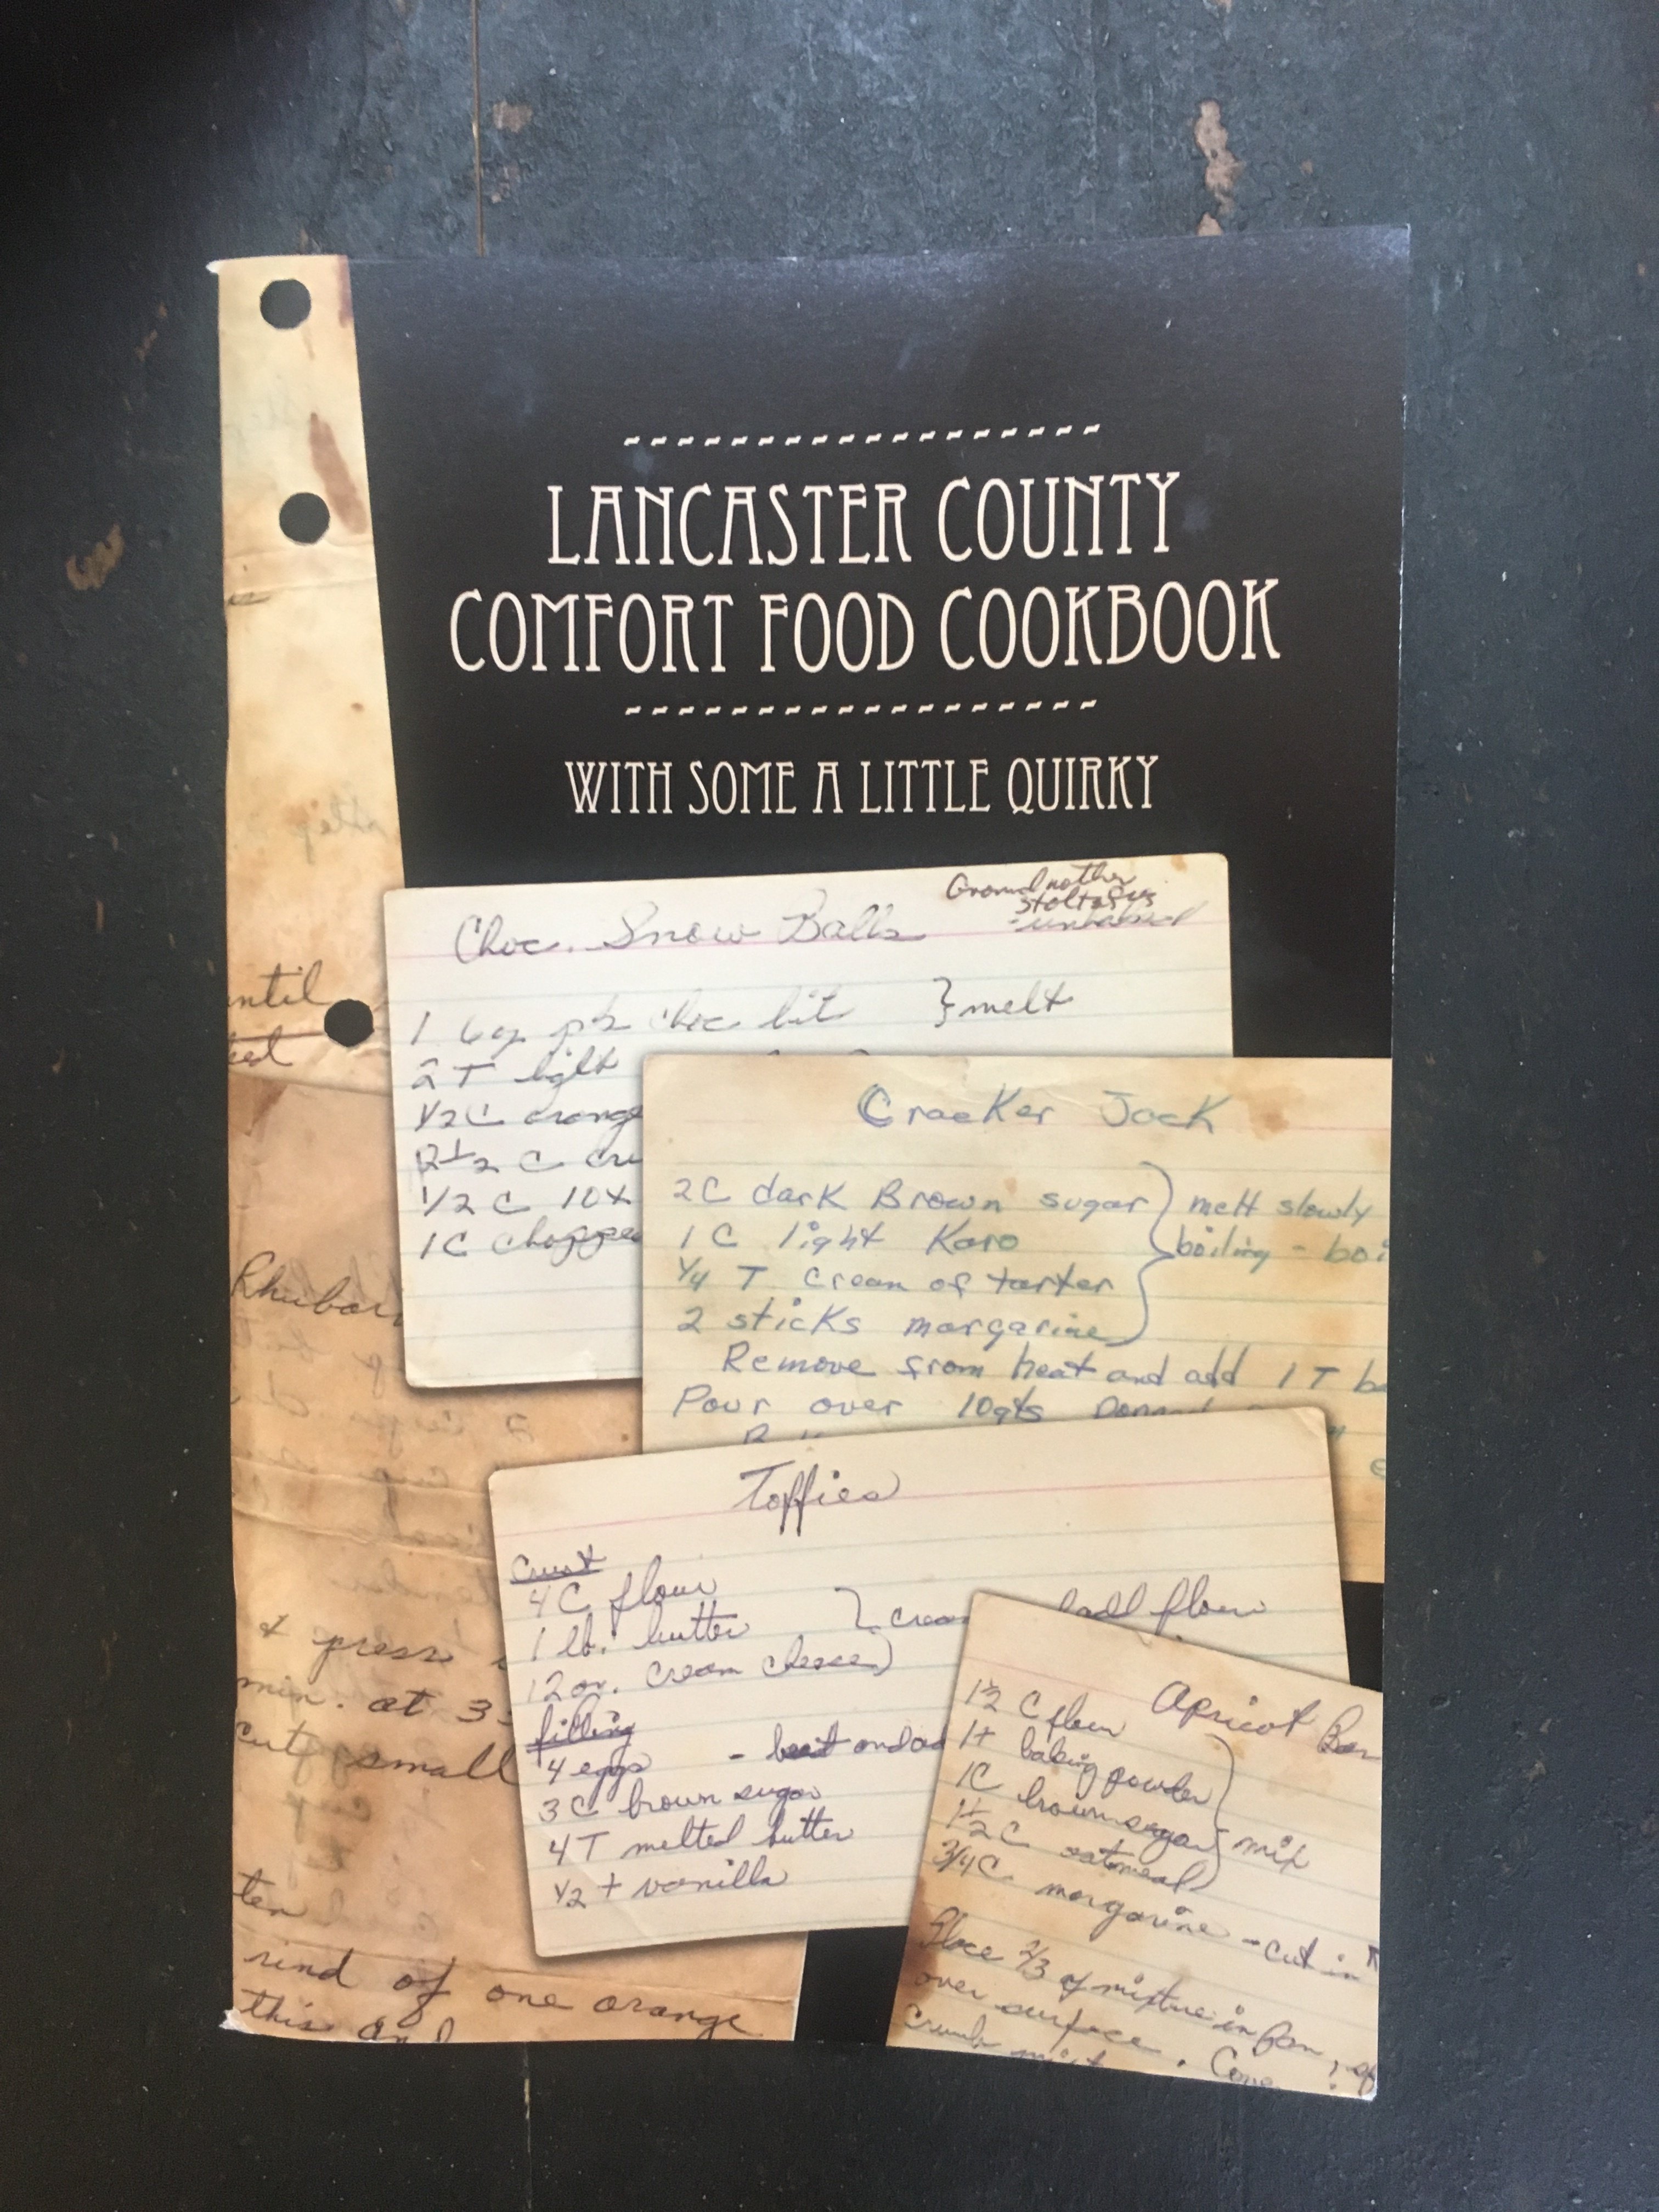 LANCASTER COUNTY
COMFORT FOOD COOKBOOK
WITH SOME A LITTLE QUIRKY
Grandmother
Stoltzfus
Choc. Snow Balls
1 6 oz pk choc bit } melt
2 T light
1/2 C orange
2 1/2 C
1/2 C 10x
1C chopped
Cracker Jack
2C dark Brown sugar
melt slowly
1 C light Karo
boiling - boi
1/4 T cream of tarter
2 sticks margarine
Remove from heat and add 1 T b
Pour over 10 qts
Toffies
Crust
4 C flour
1 lb. butter } crea
add flour
12 oz. cream cheese
filling
4 eggs - beat and ad
3 C brown sugar
4 T melted butter
1/2 t vanilla
Apricot Bar
1 1/2 C flour
1 t baking powder
1C brown sugar
mix
1 1/2 C oatmeal
3/4 C. margarine - cut in
Place 2/3 of mixture in pan,
over surface.
Crumb
ntil
Rhubar
& press
min. at 3
cut small
ten
rind of one orange
this and